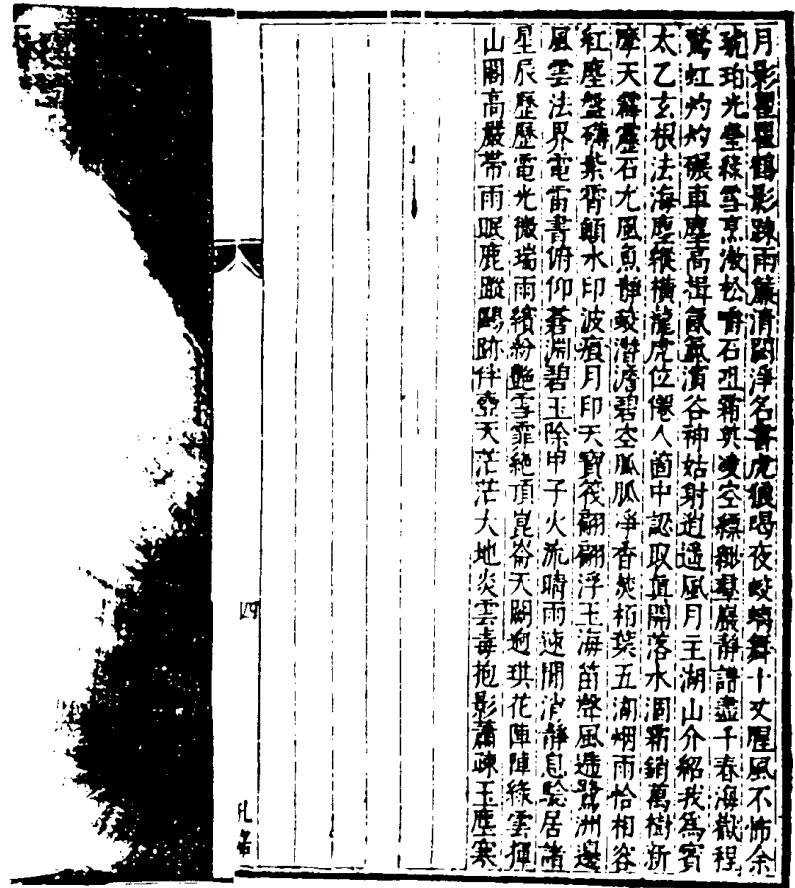 月影瞿瞿鶴影踈雨簾清閟淨名書虎狼喝夜蛟螭舞十丈腥風不怖余
琥珀光瑩綠雪烹漱松嚼石

霜與凌空縹緲羣巖靜譜盡千春海嶽程
驚虹灼灼碾車塵高揖氤氳濱谷神姑射逍遥風月主湖山介紹我爲賓
太乙玄根法海塵縱橫龍虎位僊人箇中認取眞開落水涸霜銷萬樹新
摩天霹靂石尤風魚靜蛟潛澹碧空脈脈淨香焚栢葉五湖烟雨恰相容
紅塵盤礴紫霄顛水印波痕月印天寶筏翩翩浮玉海笛聲風透鷺洲邊
風雲法界電雷書俯仰蒼淵碧玉除甲子火流晴雨速閒消靜息驗居諸
星辰歷歷電光微瑞雨繽紛艷雪霏絶頂崑崙天闕迥琪花陣陣綠雲揮
山閣高嚴帶雨眠鹿蹤鷗跡伴壺天茫茫大地炎雲毒抱影蕭疎玉塵寒
四